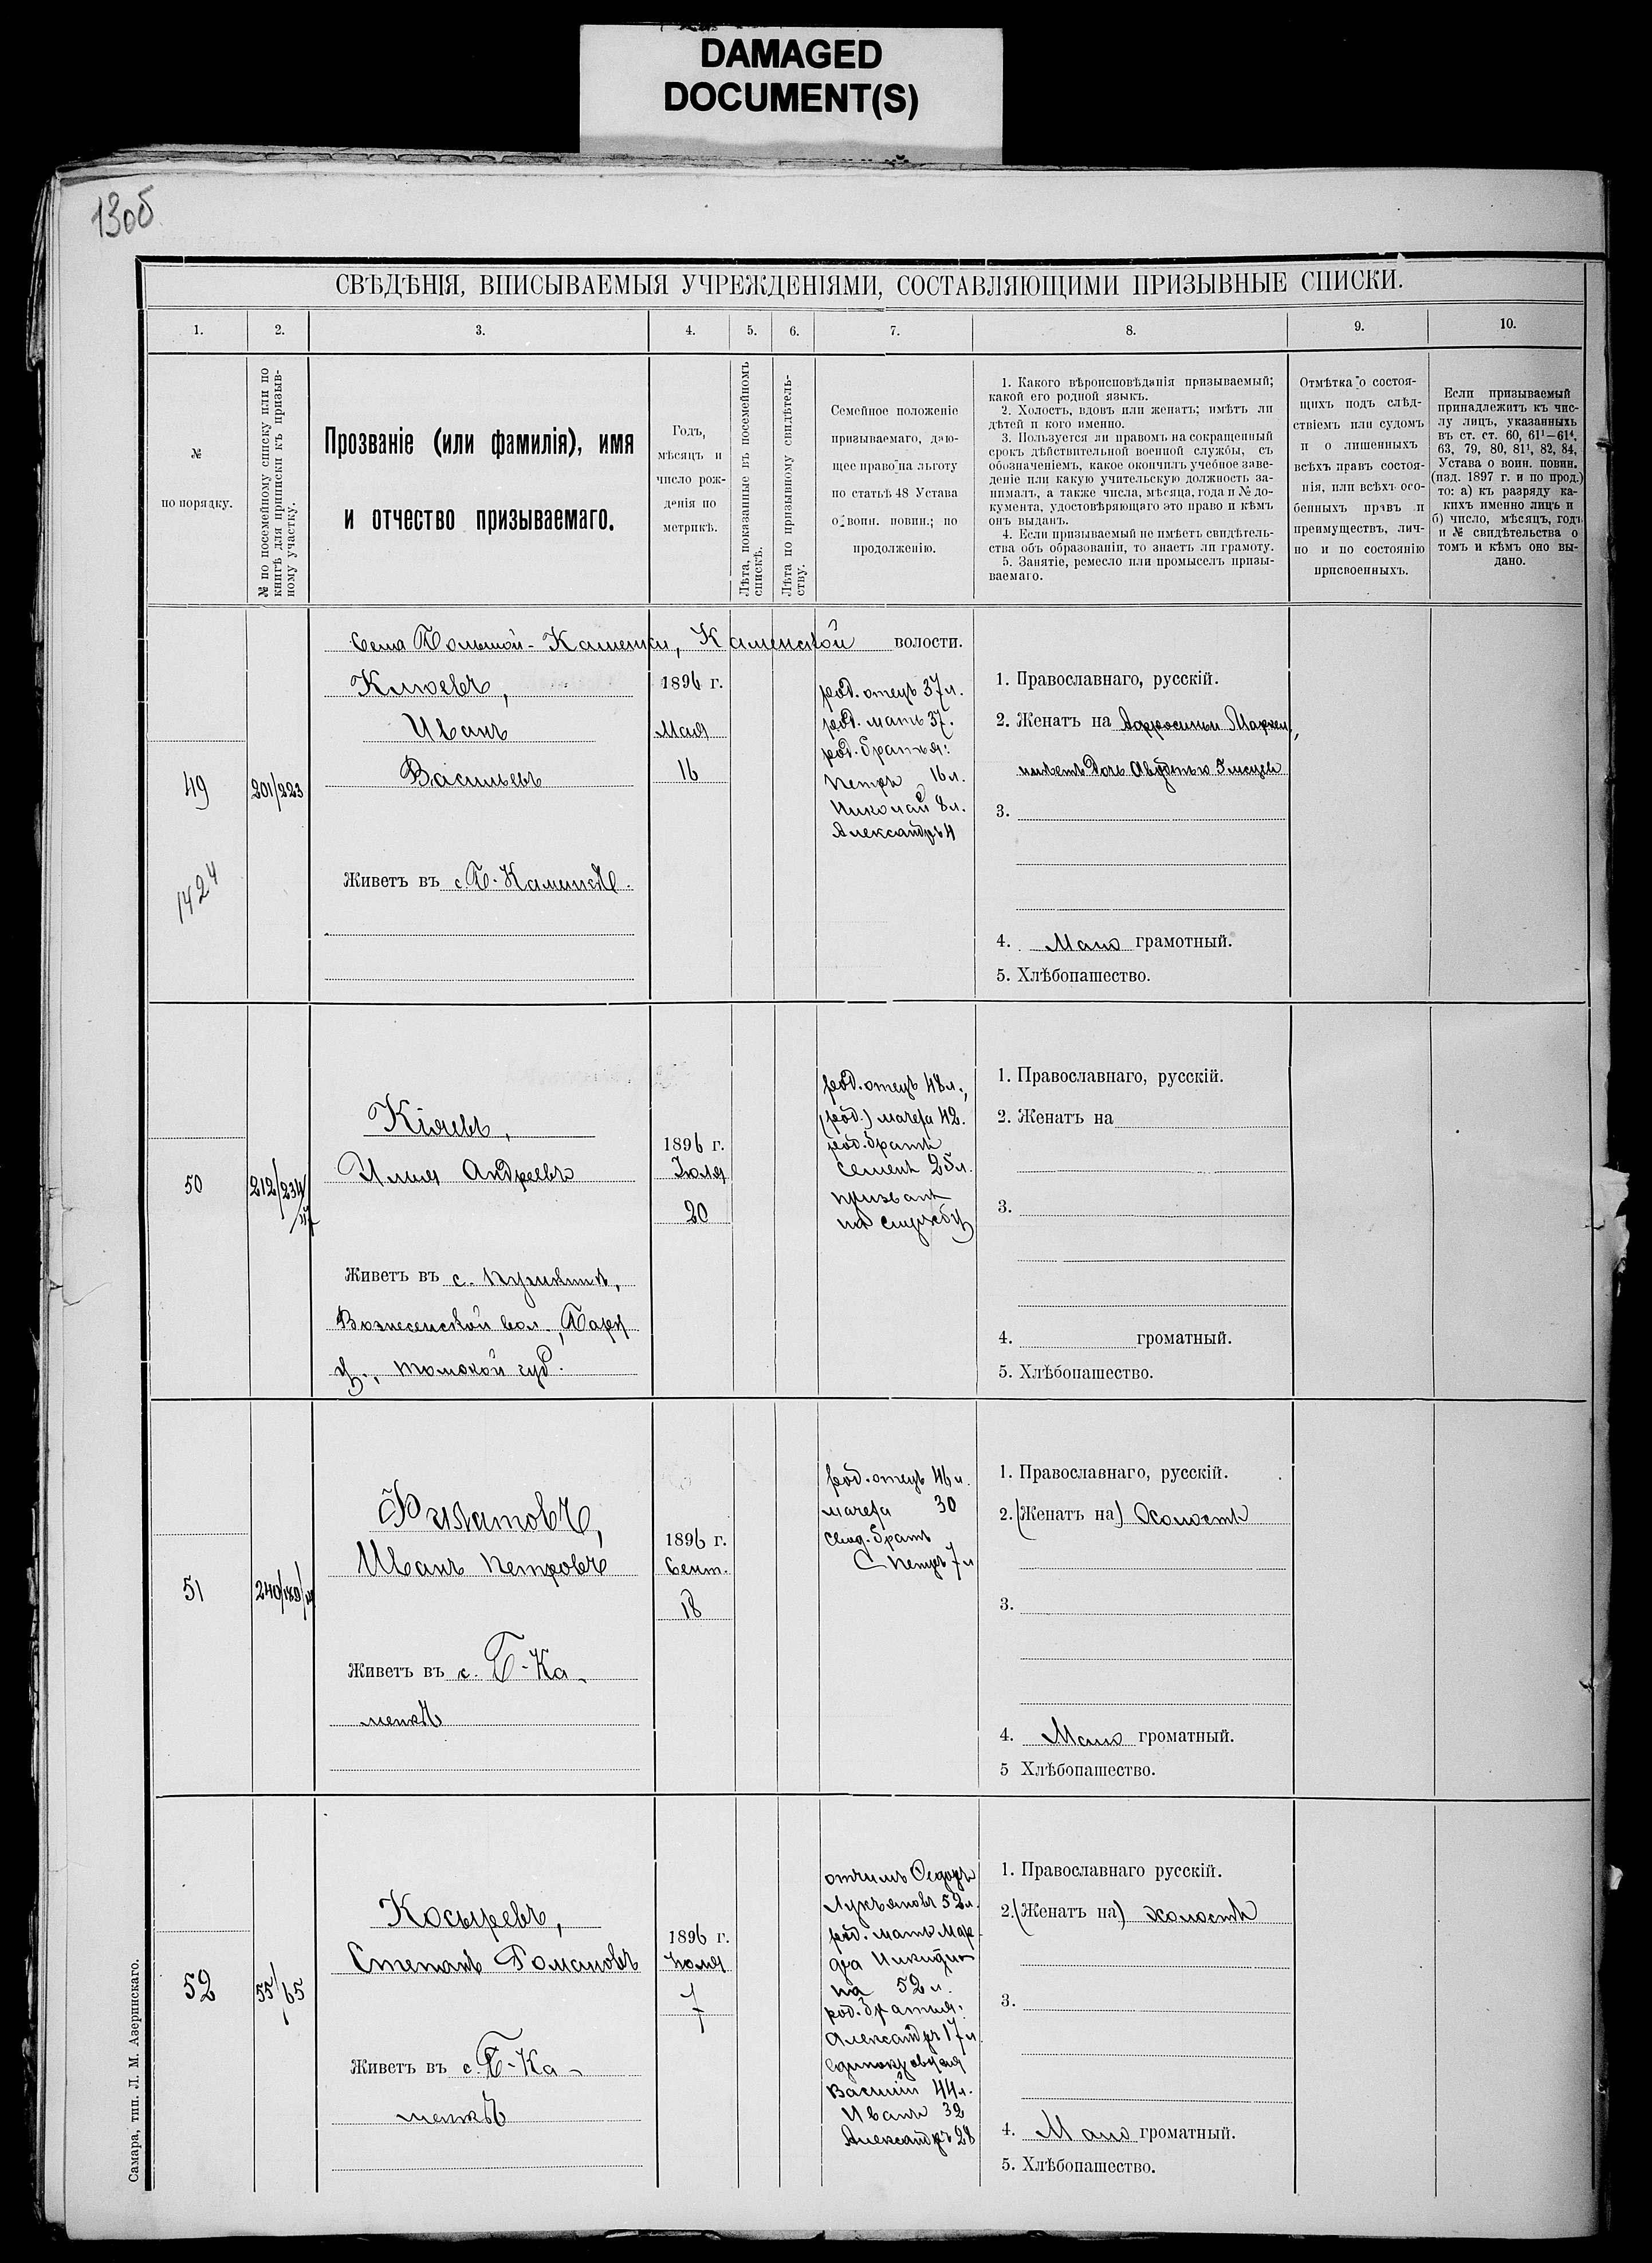 DAMAGED
DOCUMENT(S)
130б
СВѢДѢНІЯ, ВПИСЫВАЕМЫЯ УЧРЕЖДЕНІЯМИ, СОСТАВЛЯЮЩИМИ ПРИЗЫВНЫЕ СПИСКИ.
1.
2.
3.
4.
5.
6.
7.
8.
9.
10.
№
по порядку.
№ по посемейному списку или по
книгѣ для приписки къ призыв-
ному участку.
Прозваніе (или фамилія), имя
и отчество призываемаго.
Годъ,
мѣсяцъ и
число рож-
денія по
метрикѣ.
Лѣта, показанные въ посемейномъ
спискѣ.
Лѣта по призывному свидѣтель-
ству.
Семейное положеніе
призываемаго, даю-
щее право на льготу
по статьѣ 48 Устава
о воин. повин.; по
продолженію.
1. Какого вѣроисповѣданія призываемый;
какой его родной языкъ.
2. Холостъ, вдовъ или женатъ; имѣтъ ли
дѣтей и кого именно.
3. Пользуется ли правомъ на сокращенный
срокъ дѣйствительной военной службы, съ
обозначеніемъ, какое окончилъ учебное заве-
деніе или какую учительскую должность за-
нималъ, а также числа, мѣсяца, года и № до-
кумента, удостовѣряющаго это право и кѣмъ
онъ выданъ.
4. Если призываемый не имѣетъ свидѣтель-
ства объ образованіи, то знаетъ ли грамоту.
5. Занятіе, ремесло или промыселъ призы-
ваемаго.
Отмѣтка о состоя-
щихъ подъ слѣд-
ствіемъ или судомъ
и о лишенныхъ
всѣхъ правъ состоя-
нія, или всѣхъ осо-
бенныхъ правъ и
преимуществъ, лич-
но и по состоянію
присвоенныхъ.
Если призываемый
принадлежитъ къ чис-
лу лицъ, указанныхъ
въ ст. ст. 60, 61¹—61⁴,
63, 79, 80, 81¹, 82, 84,
Устава о воин. повин.
(изд. 1897 г. и по прод.)
то: а) къ разряду ка-
кихъ именно лицъ и
б) число, мѣсяцъ, годъ
и № свидѣтельства о
томъ и кѣмъ оно вы-
дано.
Села Большой-Каменки, Каменской волости.
49
1424
201/223
Клюевъ,
Иванъ
Васильевъ
Живетъ въ с Б. Каменкѣ.
1896 г.
Мая
16
род. отецъ 37 л.
род. мать 37.
род. братья:
Петръ 16 л.
Николай 8 л.
Александръ 4
1. Православнаго, русскій.
2. Женатъ на
имѣетъ дочь Авдотью
3.
4. Мало грамотный.
5. Хлѣбопашество.
50
212/234/
Кіяевъ,
Илья Андреевъ
Живетъ въ с.
Вознесенской вол.,
у., Томской губ.
1896 г.
Іюля
20
род. отецъ 48 л.,
(род.) мачеха 42.
род. братъ
Семенъ 25 л.
призванъ
на службу
1. Православнаго, русскій.
2. Женатъ на
3.
4. громатный.
5. Хлѣбопашество.
51
240/180/
Филатовъ,
Иванъ Петровъ
Живетъ въ с. Б-Ка-
менкѣ
1896 г.
Сент.
18
род. отецъ 46 л.
мачеха 30
свод. братъ
Петръ 7 л
1. Православнаго, русскій.
2. (Женатъ на) Холостъ
3.
4. Мало громатный.
5 Хлѣбопашество.
52
55/65
Косыревъ,
Степанъ Романовъ
Живетъ въ с. Б-Ка-
менкѣ
1896 г.
Іюля
7
отчимъ Ѳедоръ
Лукьяновъ 52 л.
род. мать Мар-
фа Никити-
на 52 л.
род. братья:
Александръ 17 л.
Единокровныя
Василій 44 л.
Иванъ 32
Александръ 28
1. Православнаго русскій.
2. (Женатъ на) холостъ
3.
4. Мало громатный.
5. Хлѣбопашество.
Самара, тип. Л. М. Азеринскаго.